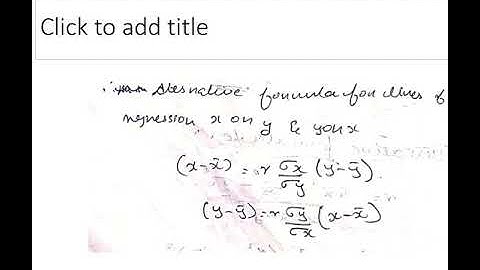 Click to add title
Alternative formula for lines of
regression x on y & y on x
(x-x̄) = r σx/σy (y-ȳ)
(y-ȳ) = r σy/σx (x-x̄)